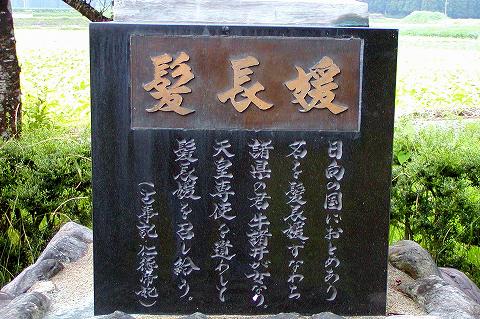 髪長媛
日向の国におとめあり
名を髪長媛すなわち
諸県の君牛諸井がむすめなり。
天皇専使を遣わして
髪長媛を召し給う。